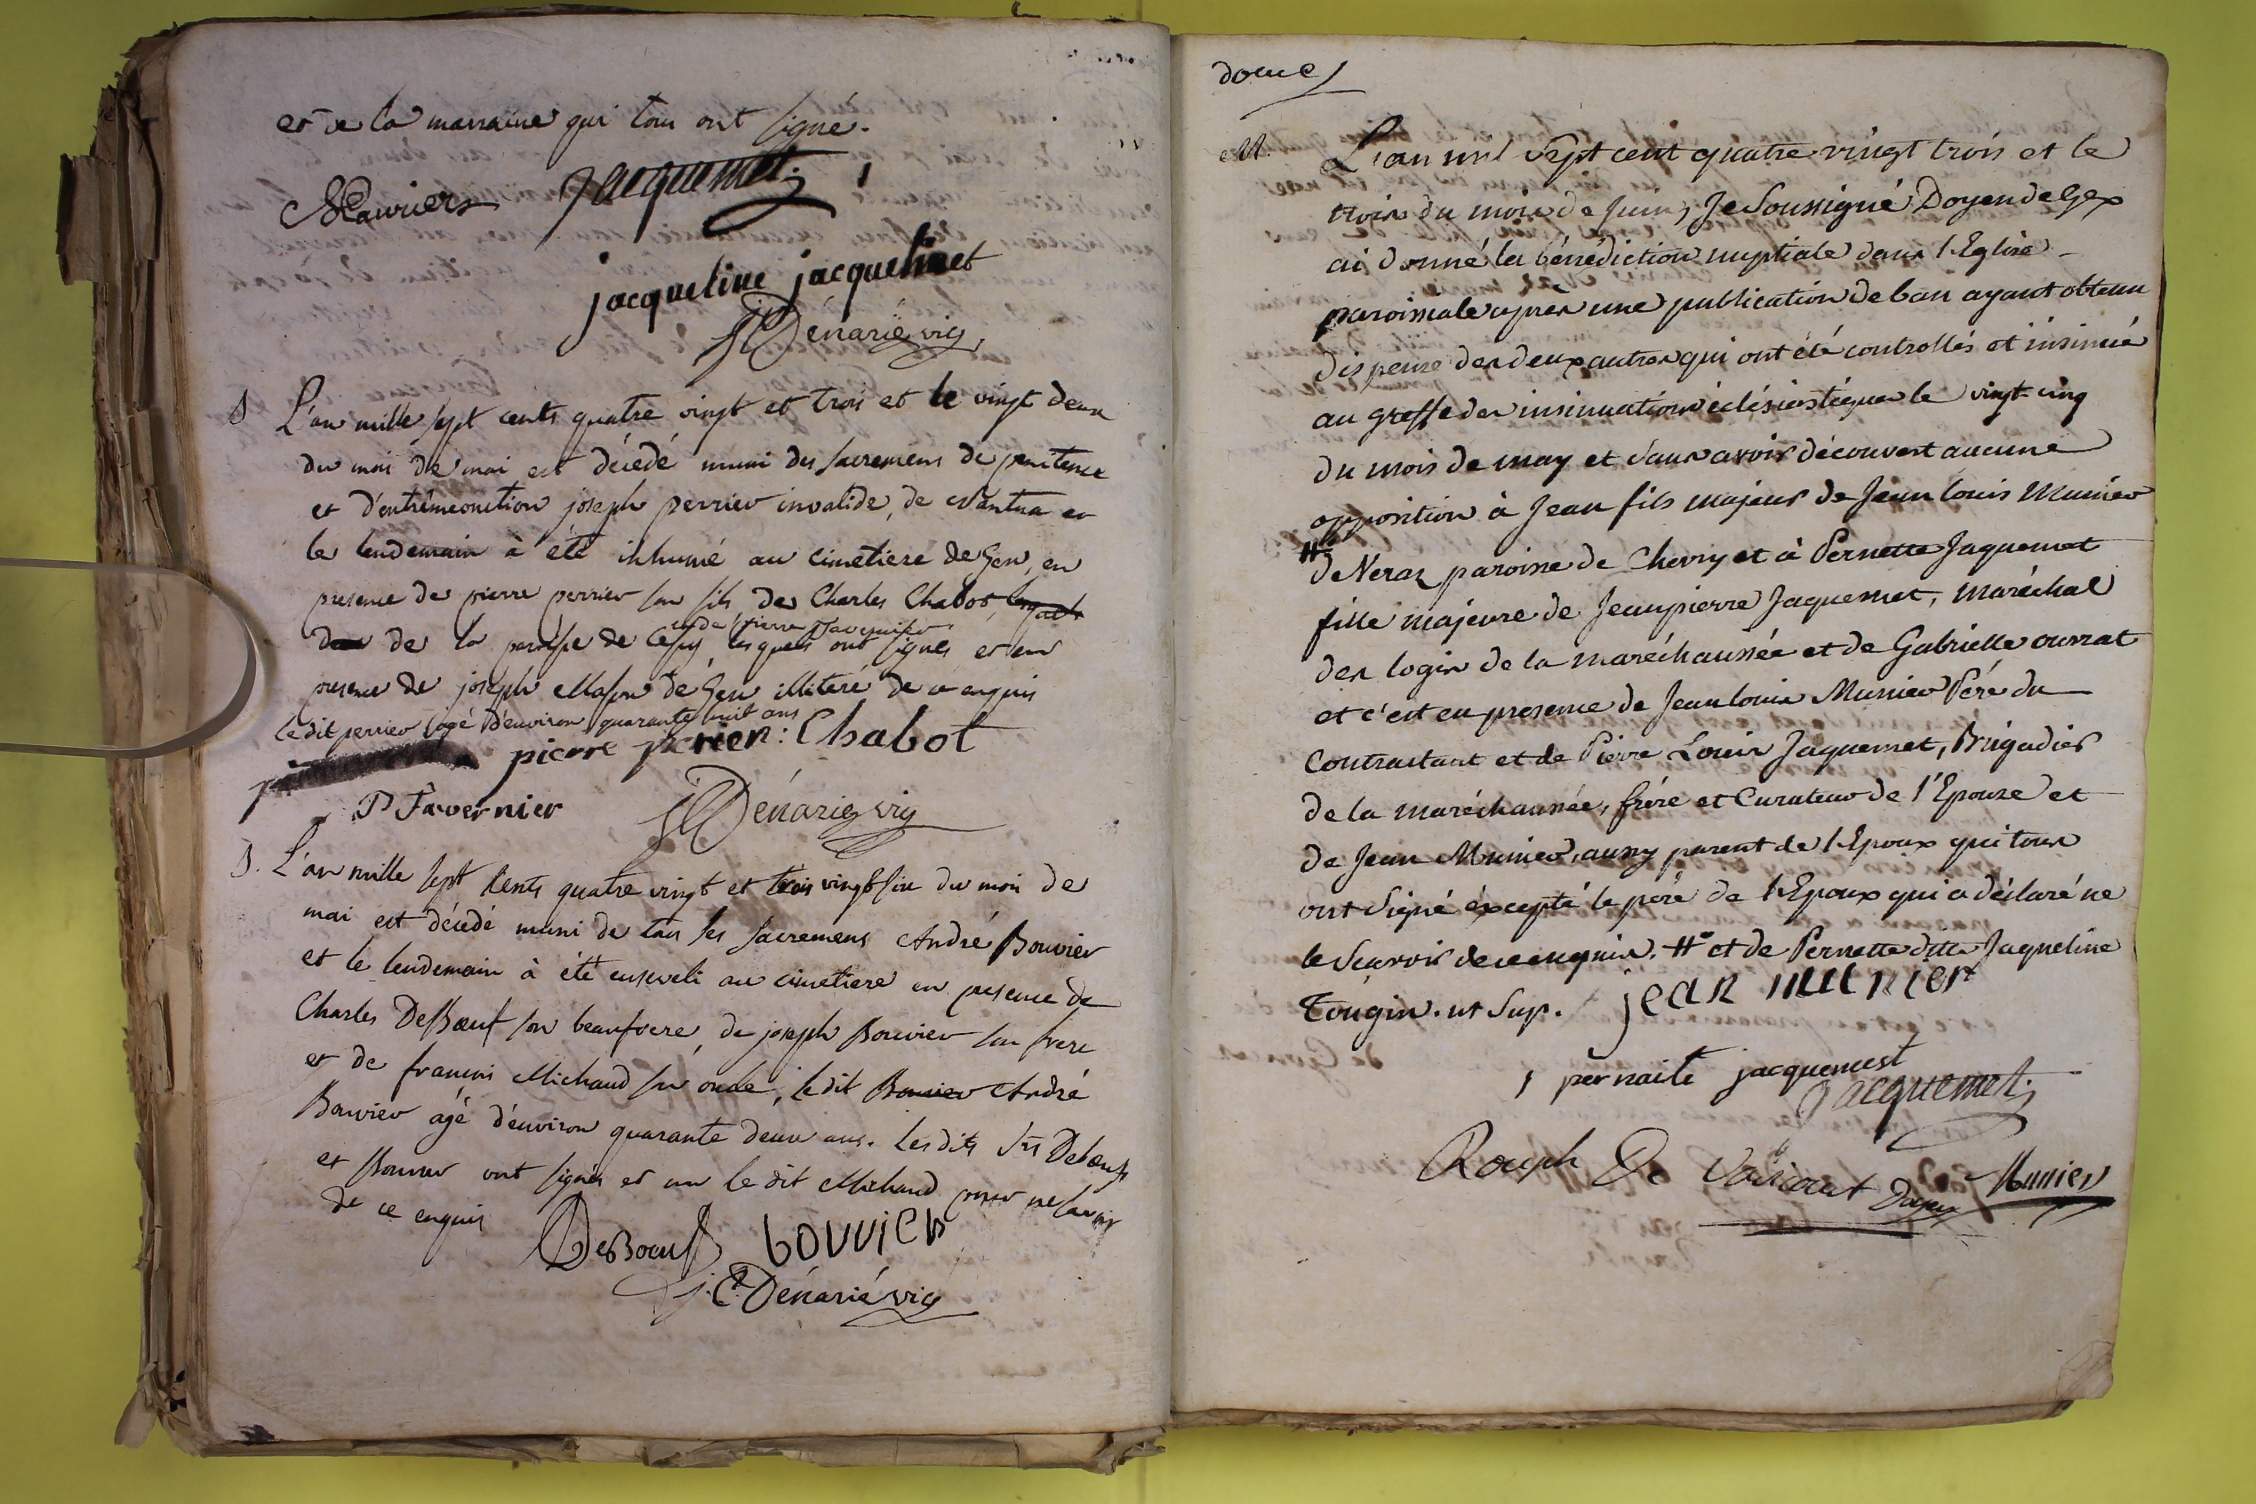 et de la marraine qui tous ont signé.
Jacquemet
jacqueline jacquelinet
Dénarié vic
S L'an mille sept cents quatre vingt et trois et le vingt deux
du mois de mai est décédé muni des sacremens de penitence
et d'extrémeonction joseph perrier invalide, de Nantua et
le lendemain à été inhumé au cimetiere de Gex, en
presence de pierre perrier son fils, de Charles Chabot lesquels
de la paroisse de Cessy et de pierre lesquels ont signés et en
presence de joseph Masson de Gex illiteré de ce enquis
le dit perrier agé d'environ quarante huit ans
pierre perier: Chabot
P Favernier Dénarié vic
S. L'an mille sept cents quatre vingt et trois vingt six du mois de
mai est décédé muni de tous les sacremens André Bouvier
et le lendemain à été enseveli au cimetiere en presence de
Charles DeBœuf son beaufrere, de joseph Bouvier son frere
et de francois Michaud son oncle, le dit Bouvier André
Bouvier agé d'environ quarante deux ans. Les dits Srs Debœuf
et Bouvier ont signés et non le dit Michaud pour ne savoir
de ce enquis
DeBoeuf bouvier
j. C. Dénarié vic
douze
M. L'an mil sept cent quatre vingt trois et le
trois du mois de Juin, Je Soussigné Doyen de Gex
ai donné la bénédiction nuptiale dans l'Eglise
paroissiale après une publication de ban ayant obtenu
dispense des deux autres qui ont été controllés et insinué
au greffe des insinuations éclésiastiques le vingt cinq
du mois de may et sans avoir découvert aucune
opposition à Jean fils majeur de Jean louis Munier
#
de Veraz paroisse de Chevry et à Pernette Jaquemet
fille majeure de Jeanpierre Jaquemet, maréchal
des logis de la maréchaussée et de Gabrielle ournat
et c'est en presence de Jean louis Munier Péré du
Contractant et de Pierre Louis Jaquemet, Brigadier
de la maréchaussée, fréré et Curateur de l'Epouse et
de Jean Munier, aussy parent de l'Epoux qui tous
ont signé éxcepté le péré de l'Epoux qui a déclaré ne
le scavoir de ce enquis. # et de Pernette ditte Jaqueline
Tougin. ut sup. jean munier
pernaite jacquemest
Jacquemet
Rouph De Varicourt Doyen Munier